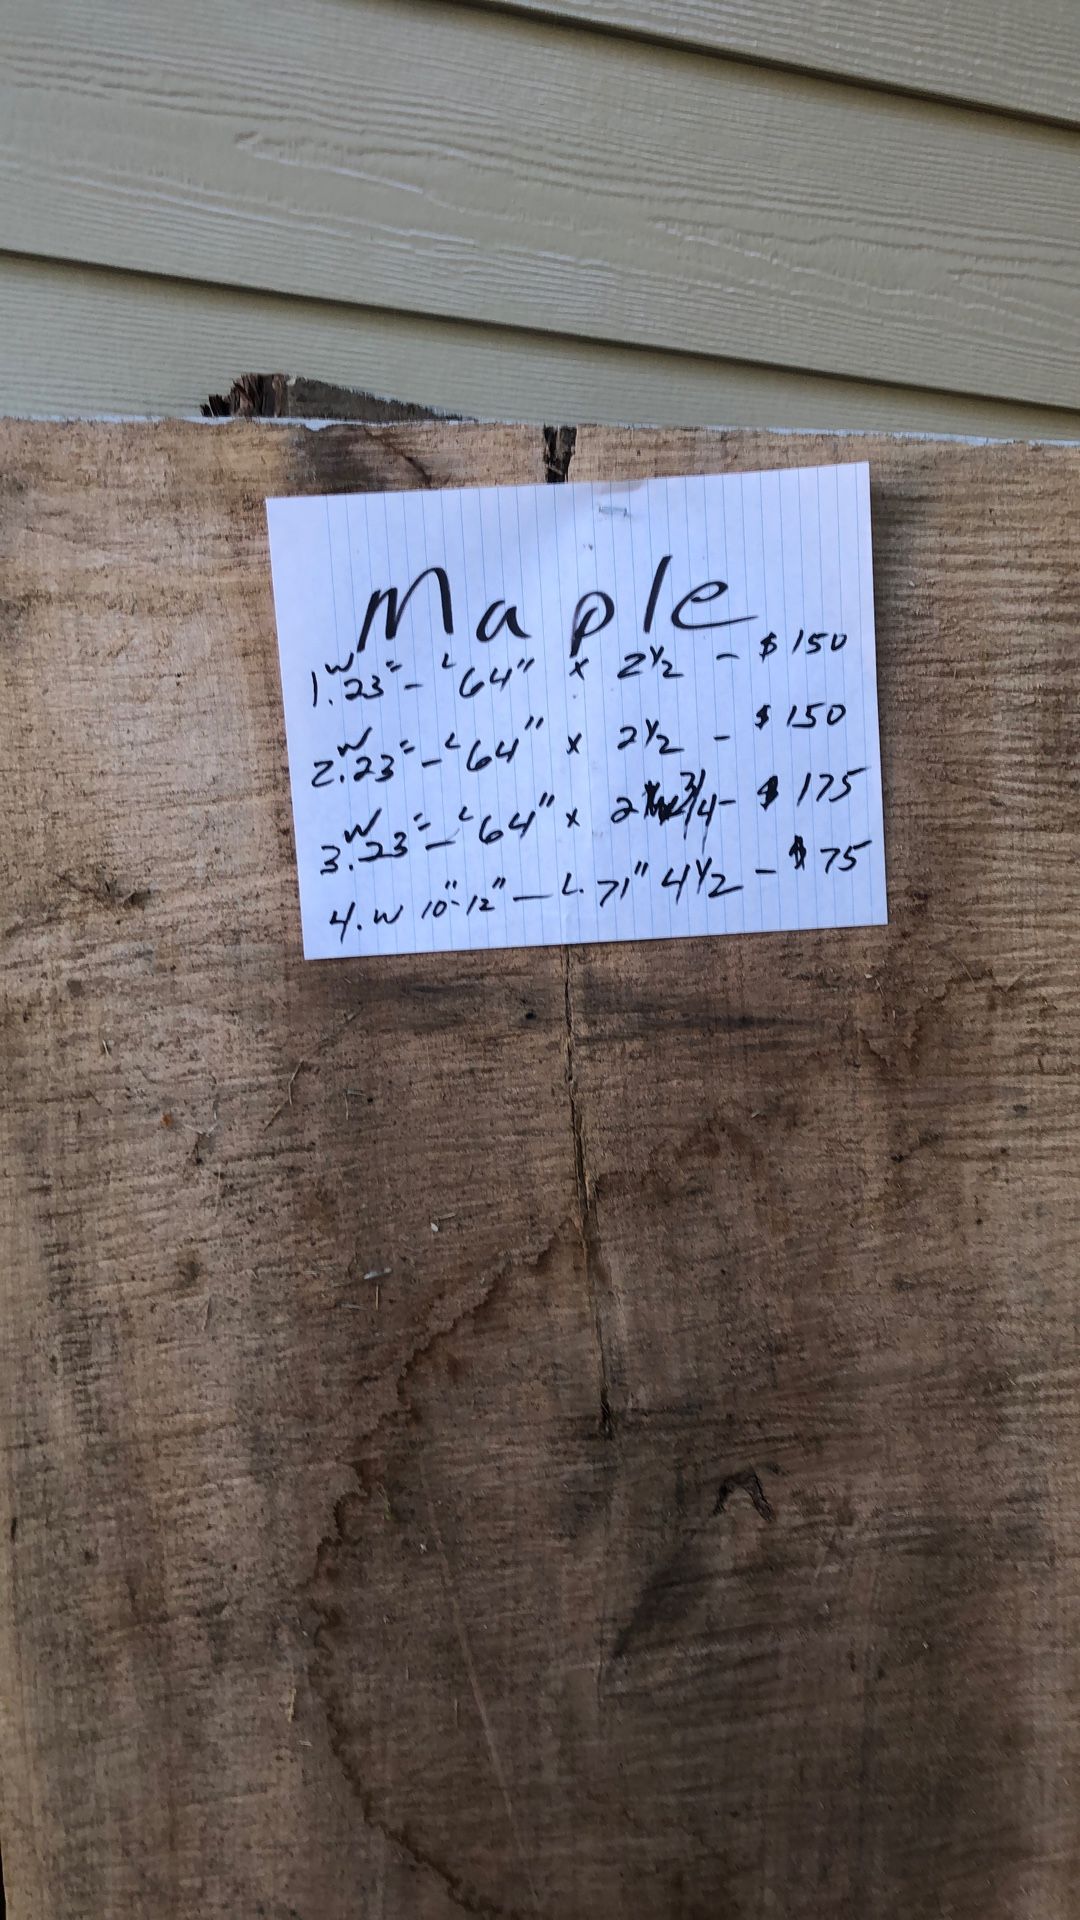 Maple
1. W 23" - L 64" x 2 1/2 - $150
2. W 23" - L 64" x 2 1/2 - $150
3. W 23" - L 64" x 2 3/4 - $175
4. W 10"-12" - L. 71" 4 1/2 - $75